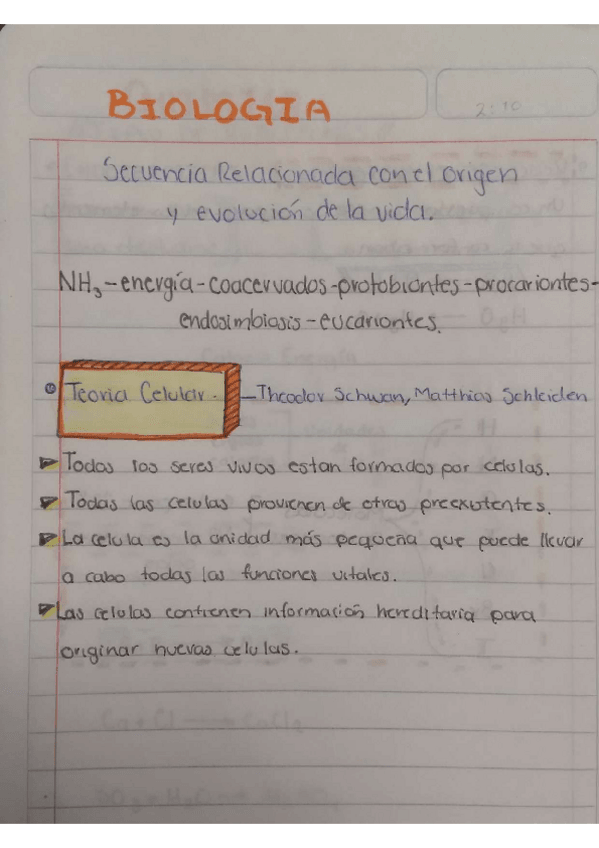 BIOLOGIA
2:10
Secuencia Relacionada con el origen
y evolución de la vida.
NH₃-energía-coacervados-protobiontes-procariontes-
endosimbiosis-eucariontes.
Teoria Celular. — Theodor Schwan, Matthias Schleiden
Todos los seres vivos estan formados por celulas.
Todas las celulas provienen de otras preexistentes.
La celula es la unidad más pequeña que puede llevar
a cabo todas las funciones vitales.
Las celulas contienen información hereditaria para
originar nuevas celulas.